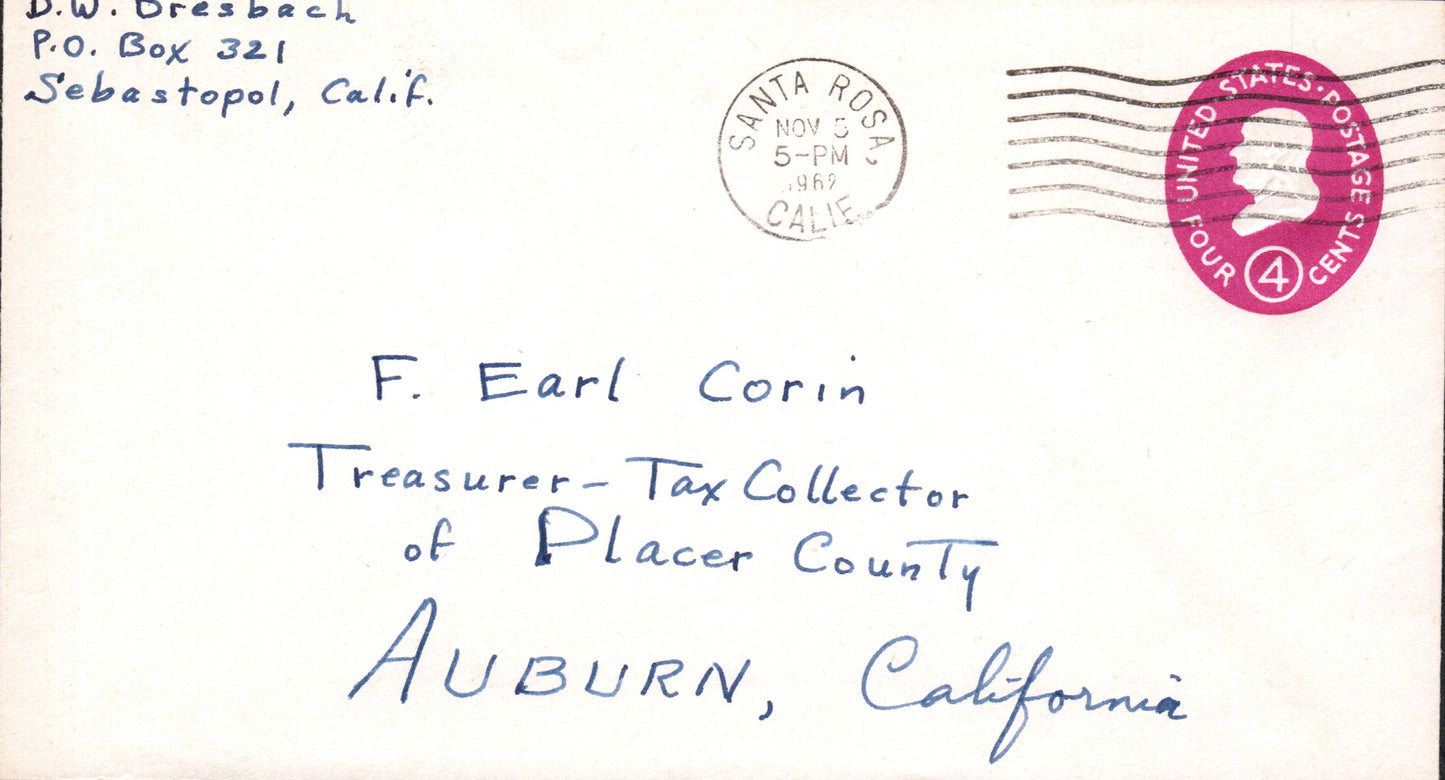 D.W. Dresbach
P.O. Box 321
Sebastopol, Calif.
SANTA ROSA,
NOV 5
5-PM
1962
CALIF.
UNITED STATES·POSTAGE
FOUR 4 CENTS
F. Earl Corin
Treasurer-Tax Collector
of Placer County
AUBURN, California